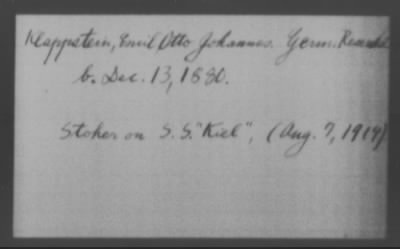 Klappstein, Emil Otto Johannes. Germ.
b. Dec. 13, 1880.
Stoker on S.S. "Kiel", (Aug. 7, 1914)